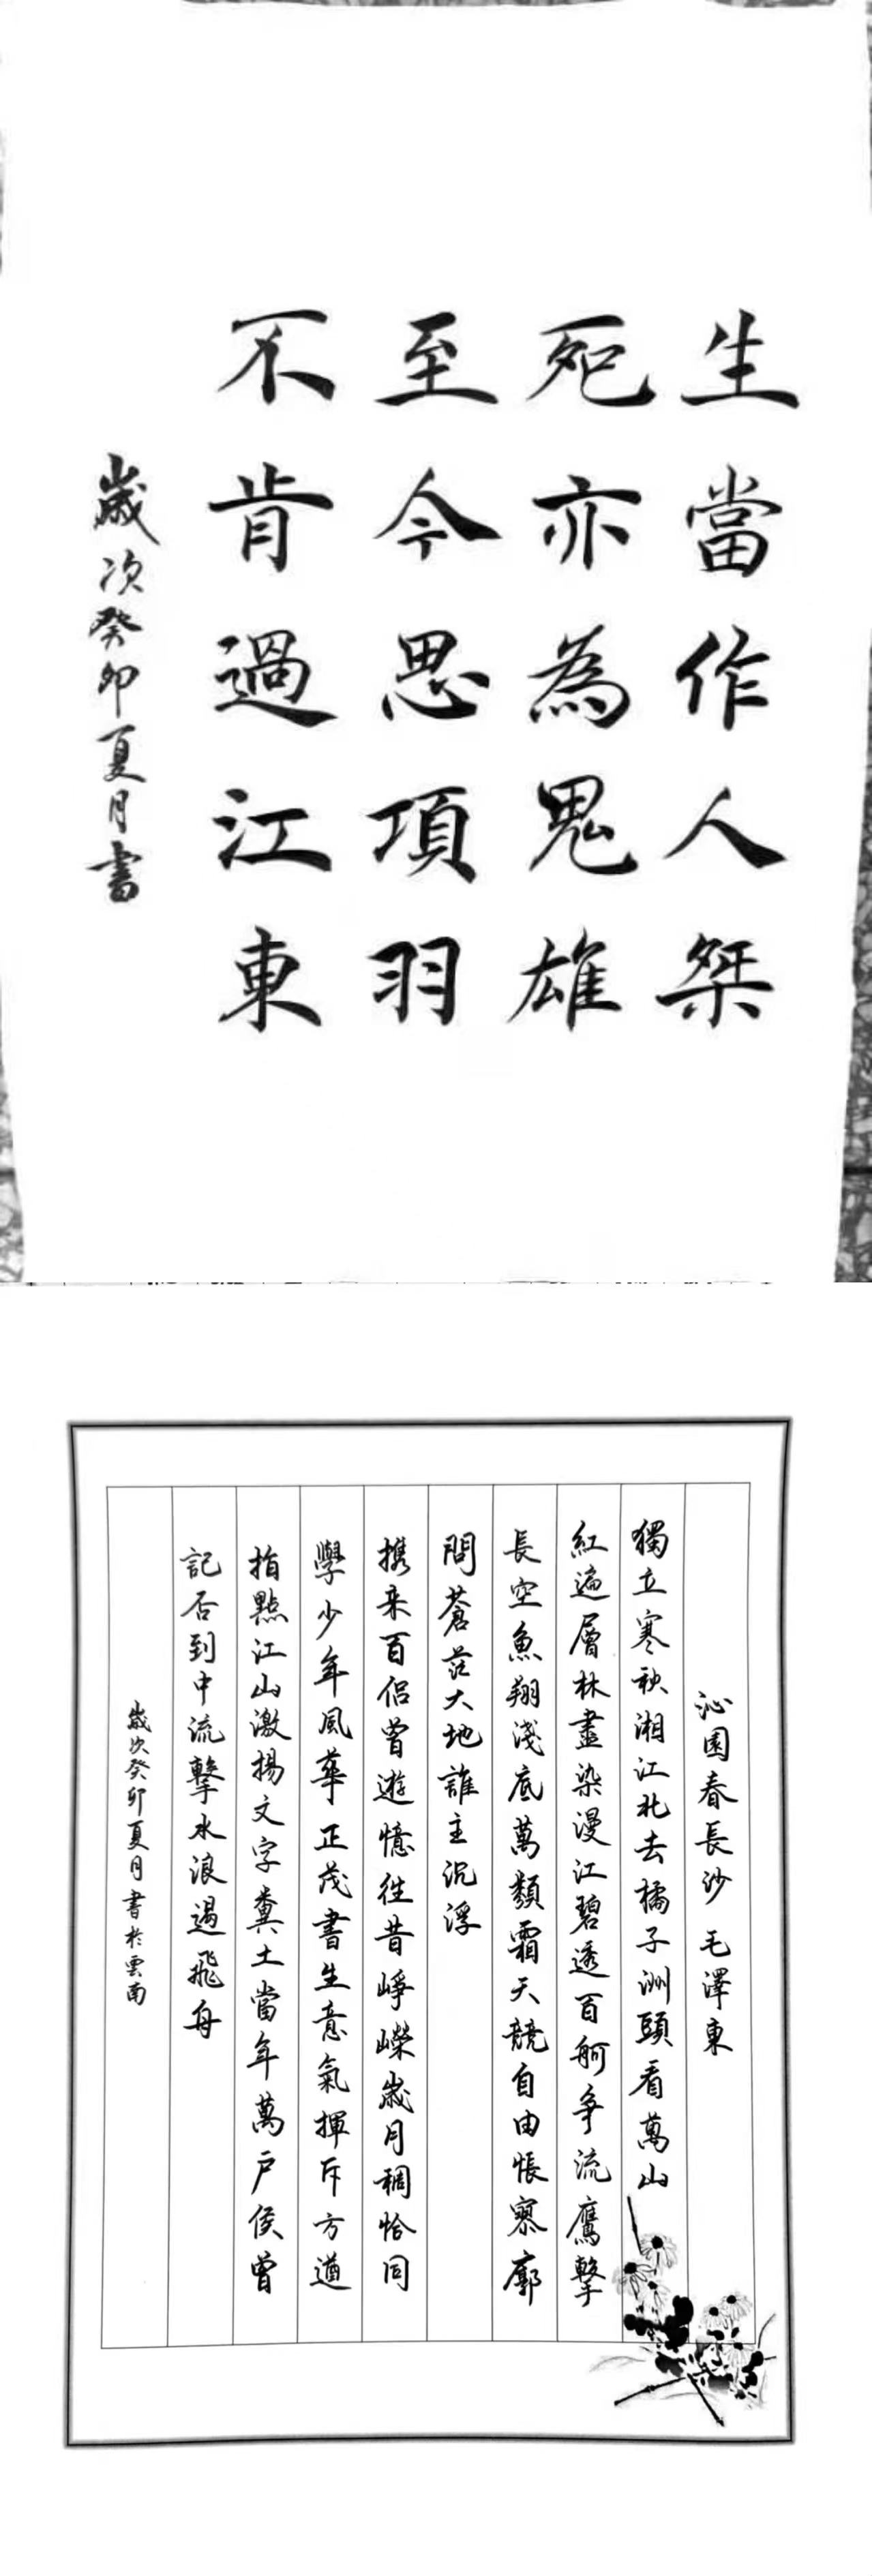 生當作人桀
死亦為鬼雄
至今思項羽
不肯過江東
歲次癸卯夏月書
沁園春長沙 毛澤東
獨立寒秋湘江北去橘子洲頭看萬山
紅遍層林盡染漫江碧透百舸爭流鷹擊
長空魚翔淺底萬類霜天競自由悵寥廓
問蒼茫大地誰主沉浮
攜來百侶曾遊憶往昔崢嶸歲月稠恰同
學少年風華正茂書生意氣揮斥方遒
指點江山激揚文字糞土當年萬戶侯曾
記否到中流擊水浪遏飛舟
歲次癸卯夏月書於雲南